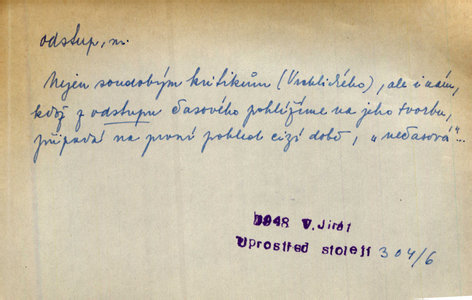 odstup, m.
Nejen soudobým kritikům (Vrchlického), ale i nám,
když z odstupu časového pohlížíme na jeho tvorbu,
připadá na první pohled cizí době, „nečasová“...
1948 V.Jirát
Uprostřed století 304/6